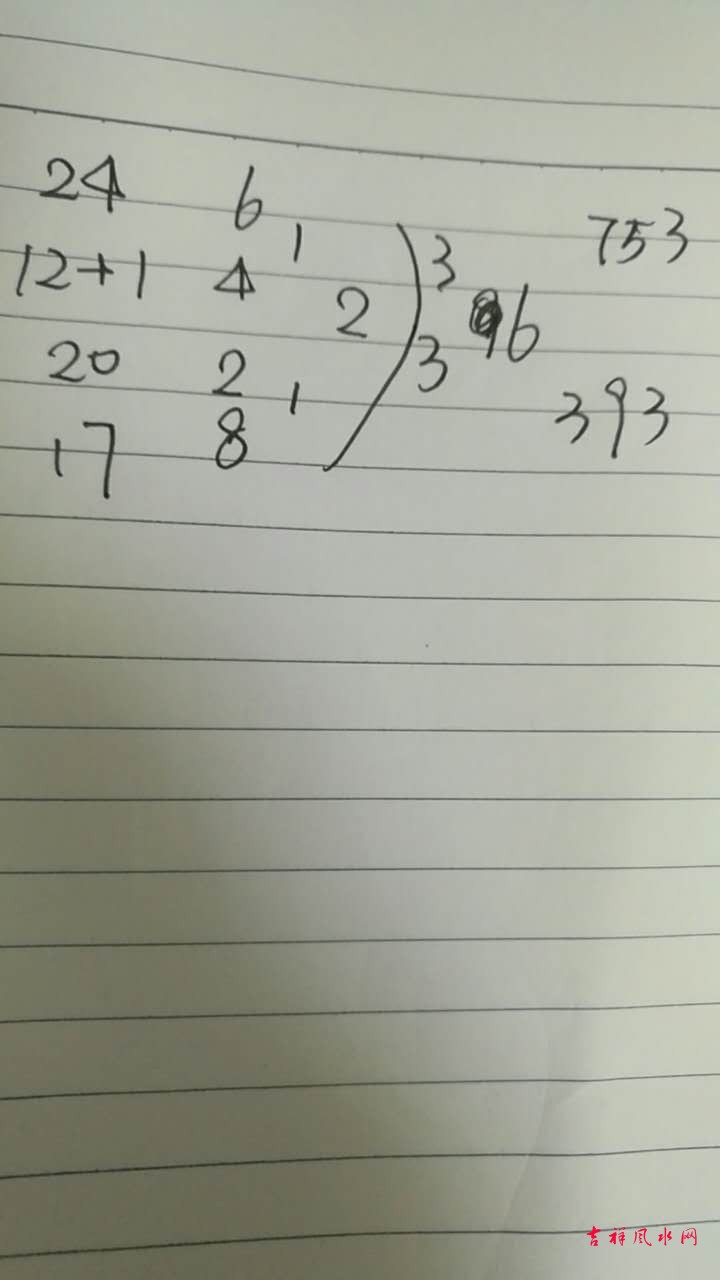 24 6
1
753
12+1 4
3
2
96
20 2
3
1
393
17 8
吉祥风水网